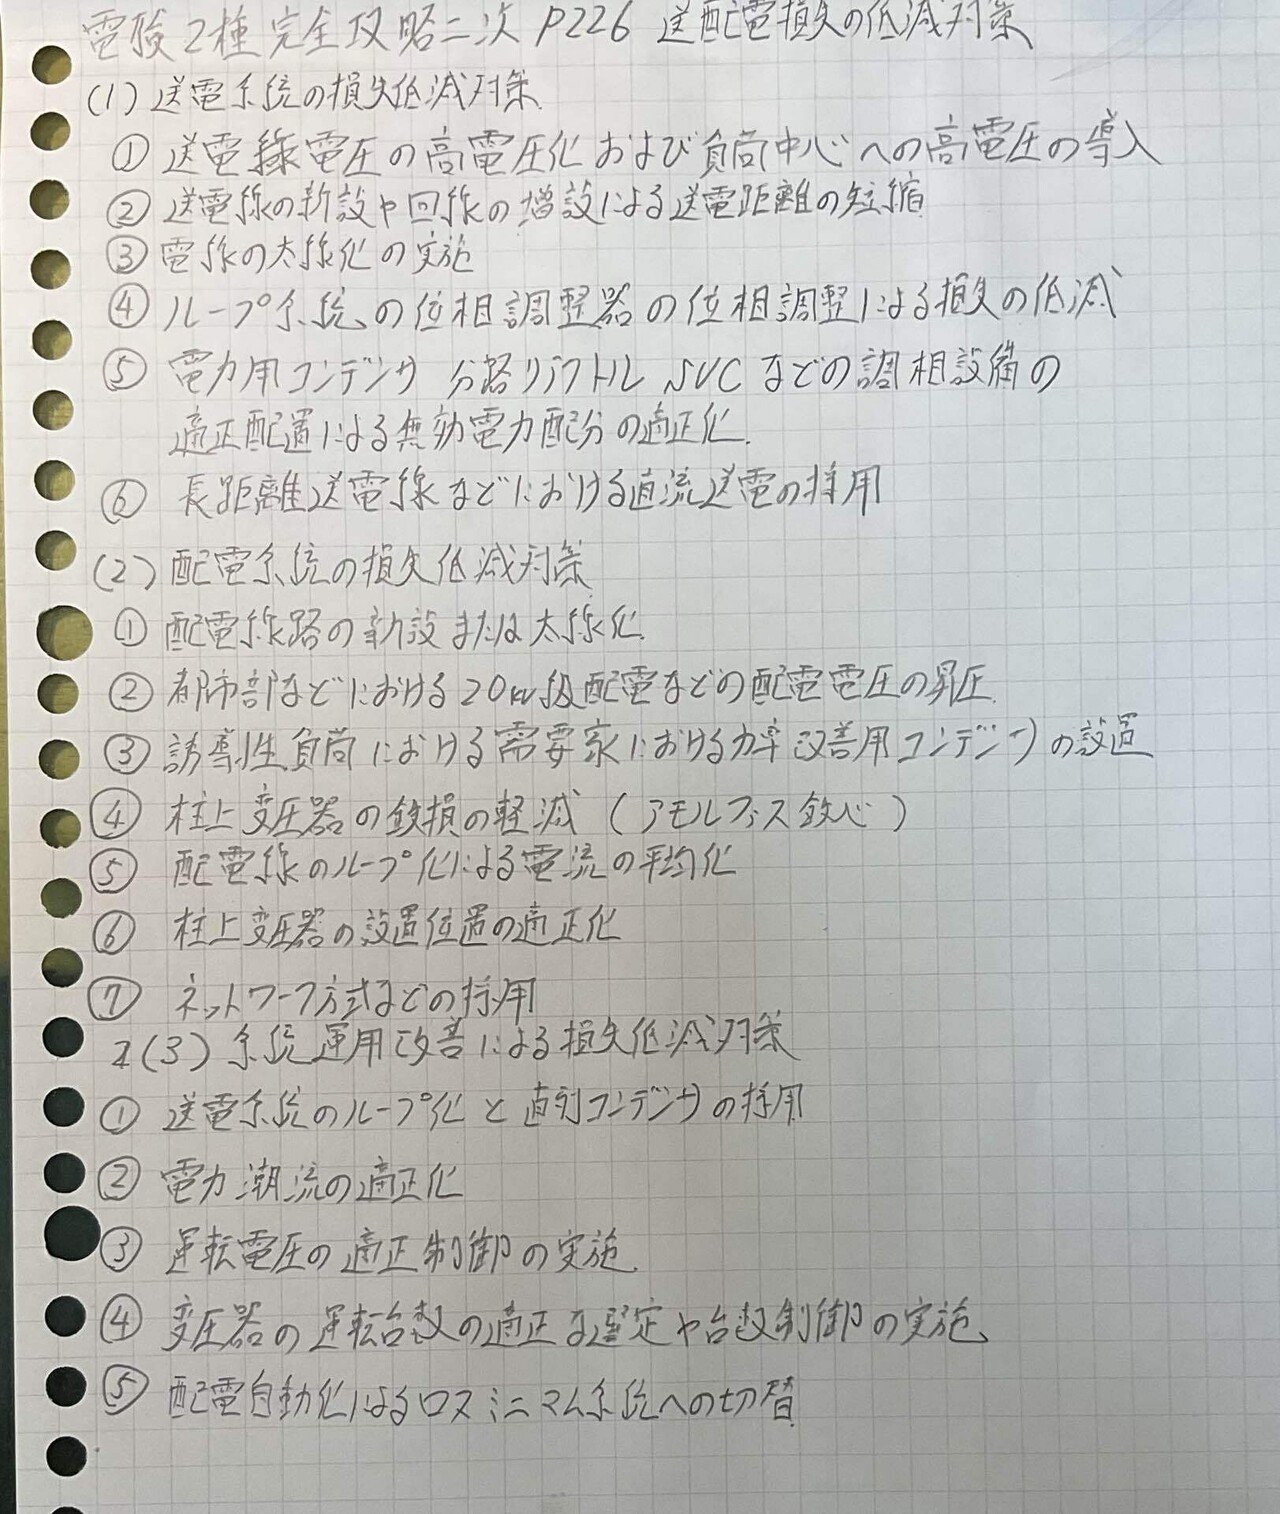 電験2種完全攻略二次 P226 送配電損失の低減対策
(1)送電系統の損失低減対策
① 送電線電圧の高電圧化および負荷中心への高電圧の導入
② 送電線の新設や回線の増設による送電距離の短縮
③ 電線の太線化の実施
④ ループ系統の位相調整器の位相調整による損失の低減
⑤ 電力用コンデンサ 分路リアクトル SVCなどの調相設備の
適正配置による無効電力配分の適正化
⑥ 長距離送電線などにおける直流送電の採用
(2)配電系統の損失低減対策
① 配電線路の新設または太線化
② 都市部などにおける20kV級配電などの配電電圧の昇圧
③ 誘導性負荷における需要家における力率改善用コンデンサの設置
④ 柱上変圧器の鉄損の軽減(アモルファス鉄心)
⑤ 配電線のループ化による電流の平均化
⑥ 柱上変圧器の設置位置の適正化
⑦ ネットワーク方式などの採用
(3)系統運用改善による損失低減対策
① 送電系統のループ化と直列コンデンサの採用
② 電力潮流の適正化
③ 運転電圧の適正制御の実施
④ 変圧器の運転台数の適正な選定や台数制御の実施
⑤ 配電自動化によるロスミニマム系統への切替